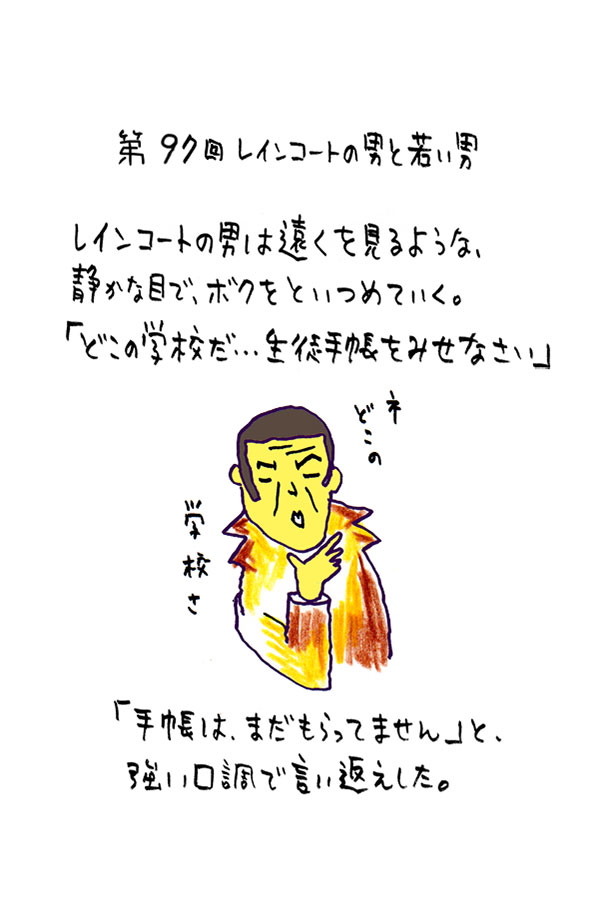 第97回 レインコートの男と若い男
レインコートの男は遠くを見るような、
静かな目で、ボクをといつめていく。
「どこの学校だ…生徒手帳をみせなさい」
ネ
どこの
学校さ
「手帳は、まだもらってません」と、
強い口調で言い返えした。